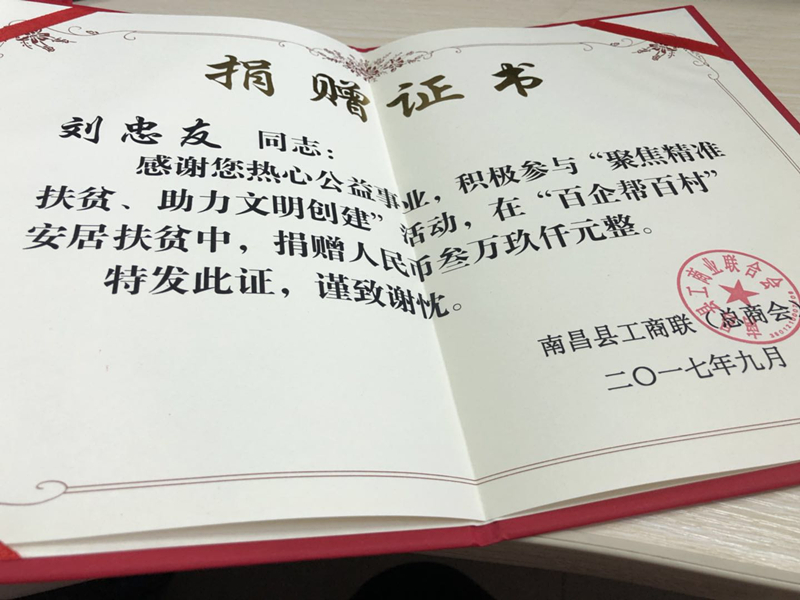 捐赠证书
刘忠友 同志：
感谢您热心公益事业，积极参与“聚焦精准
扶贫、助力文明创建”活动，在“百企帮百村”
安居扶贫中，捐赠人民币叁万玖仟元整。
特发此证，谨致谢忱。
南昌县工商联（总商会）
二〇一七年九月
县工商业联合会